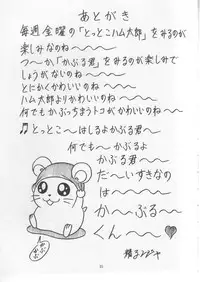 あとがき
毎週金曜の「とっとこハム太郎」をみるのが
楽しみなのね〜〜
つーか、「かぶる君」をみるのが楽しみで
しょうがないのね〜〜
とにかくかわいいのね〜〜
ハム太郎よりかわいいのね〜〜
何でもかぶっちまうトコがかわいいのね〜〜
♫とっとこ〜はしるよかぶる君〜〜
何でも〜かぶるよ
かぶる君〜〜
だ〜いすきなの
は〜〜〜
か〜ぶる〜
くん〜〜♥
かぶ
かぶ